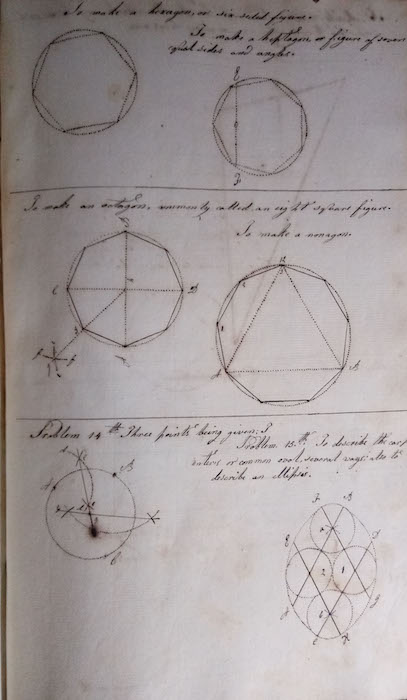 To make a hexagon, or six sided figure.
To make a heptagon, or figure of seven
equal sides and angles.
To make an octagon, commonly called an eight square figure.
To make a nonagon.
Problem 14th Three points being given,
Problem 15th To describe the carp
enters or common oval, several ways; also to
describe an Ellipsis.